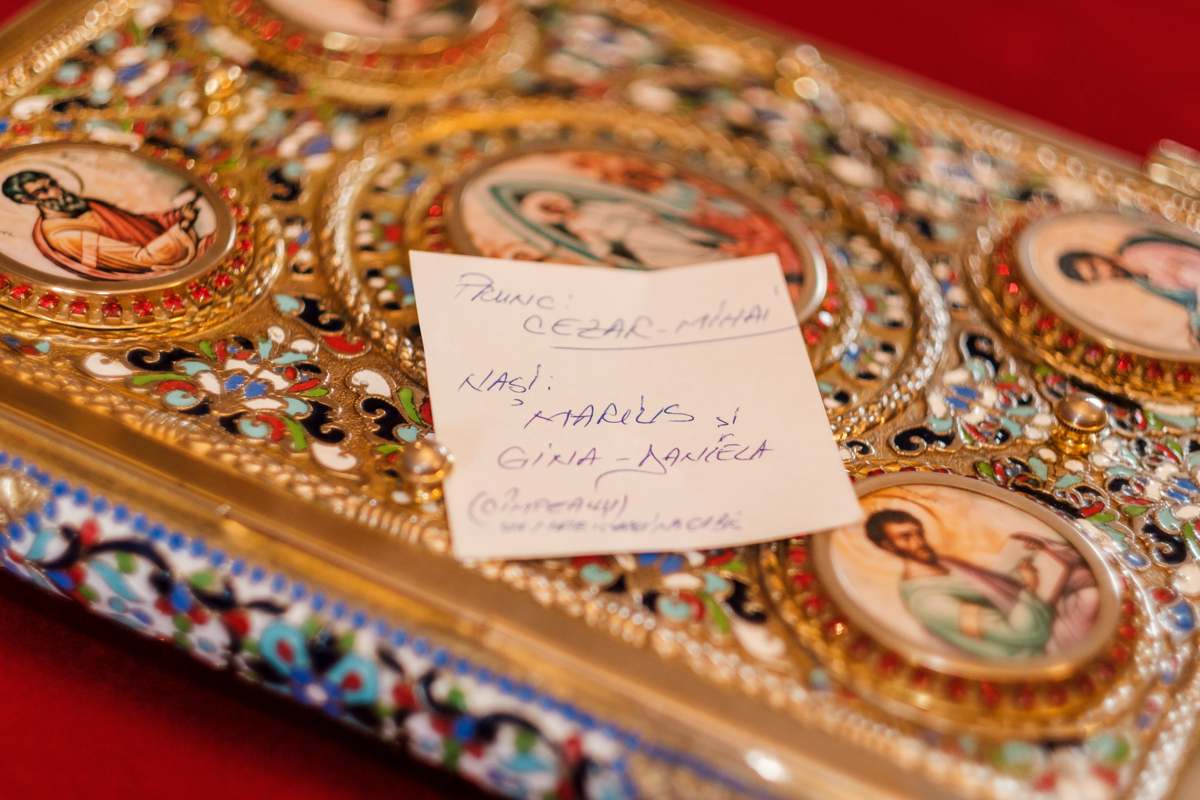 PRUNC:
CEZAR-MIHAI
NAȘI:
MARIUS ȘI
GINA-DANIELA